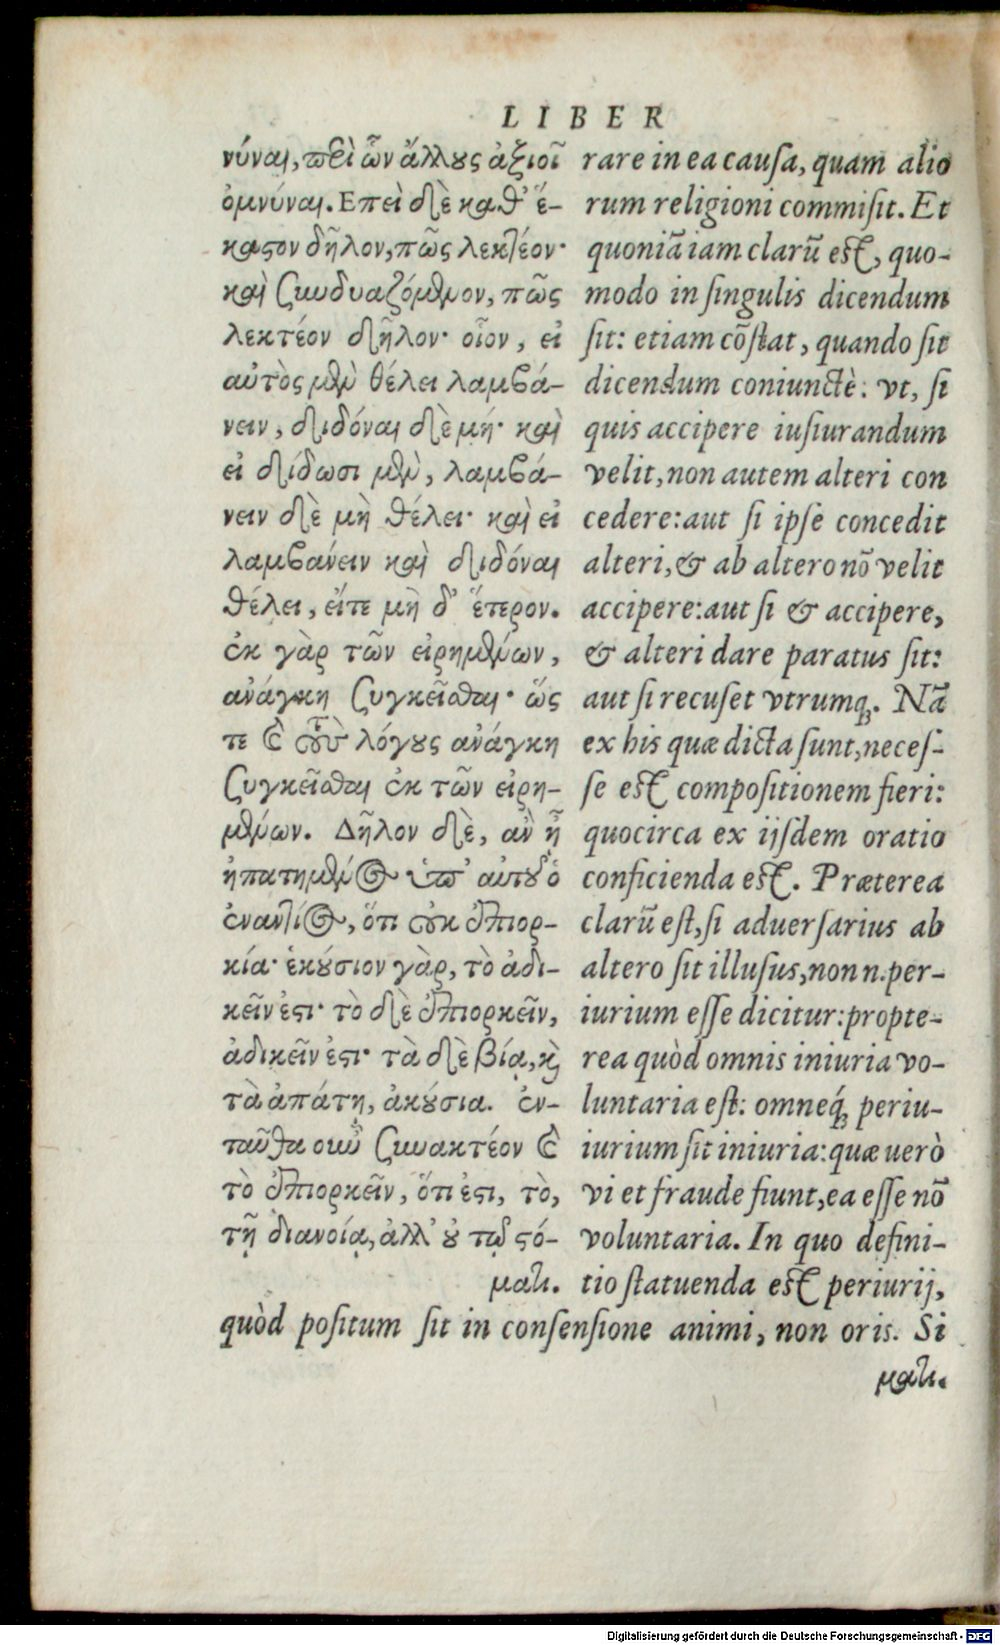 LIBER
νύναι, περὶ ὧν ἄλλους ἀξιοῖ
ὀμνύναι. Επεὶ δὲ καθ᾽ ἕ-
καστον δῆλον, πῶς λεκτέον·
καὶ συνδυαζόμενον, πῶς
λεκτέον δῆλον· οἷον, εἰ
αὐτὸς μὲν θέλει λαμβά-
νειν, διδόναι δὲ μή· καὶ
εἰ δίδωσι μὲν, λαμβά-
νειν δὲ μὴ θέλει· καὶ εἰ
λαμβάνειν καὶ διδόναι
θέλει, εἴτε μὴ δ᾽ ἕτερον.
ἐκ γὰρ τῶν εἰρημένων,
ἀνάγκη συγκεῖσθαι· ὥς
τε καὶ τοὺς λόγους ἀνάγκη
συγκεῖσθαι ἐκ τῶν εἰρη-
μένων. Δῆλον δὲ, ἂν ᾖ
ἠπατημένος ὑπ᾽ αὐτοῦ ὁ
ἐναντίος, ὅτι οὐκ ἐπιορ-
κία· ἑκούσιον γὰρ, τὸ ἀδι-
κεῖν ἐστι· τὸ δὲ ἐπιορκεῖν,
ἀδικεῖν ἐστι· τὰ δὲ βίᾳ, καὶ
τὰ ἀπάτῃ, ἀκούσια. ἐν-
ταῦθα οὖν συνακτέον καὶ
τὸ ἐπιορκεῖν, ὅτι ἐστι, τὸ,
τῇ διανοίᾳ, ἀλλ᾽ οὐ τῷ στό-
ματι.
rare in ea causa, quam alio
rum religioni commisit. Et
quoniã iam clarũ est, quo-
modo in singulis dicendum
sit: etiam cõstat, quando sit
dicendum coniunctè: vt, si
quis accipere iusiurandum
velit, non autem alteri con
cedere: aut si ipse concedit
alteri, & ab altero nõ velit
accipere: aut si & accipere,
& alteri dare paratus sit:
aut si recuset vtrumq;. Nã
ex his quæ dicta sunt, neces-
se est compositionem fieri:
quocirca ex iisdem oratio
conficienda est. Præterea
clarũ est, si aduersarius ab
altero sit illusus, non n. per-
iurium esse dicitur: propte-
rea quòd omnis iniuria vo-
luntaria est: omneq́; periu-
iurium sit iniuria: quæ uerò
vi et fraude fiunt, ea esse nõ
voluntaria. In quo defini-
tio statuenda est periurij,
quòd positum sit in consensione animi, non oris. Si
ματι.
Digitalisierung gefördert durch die Deutsche Forschungsgemeinschaft - DFG